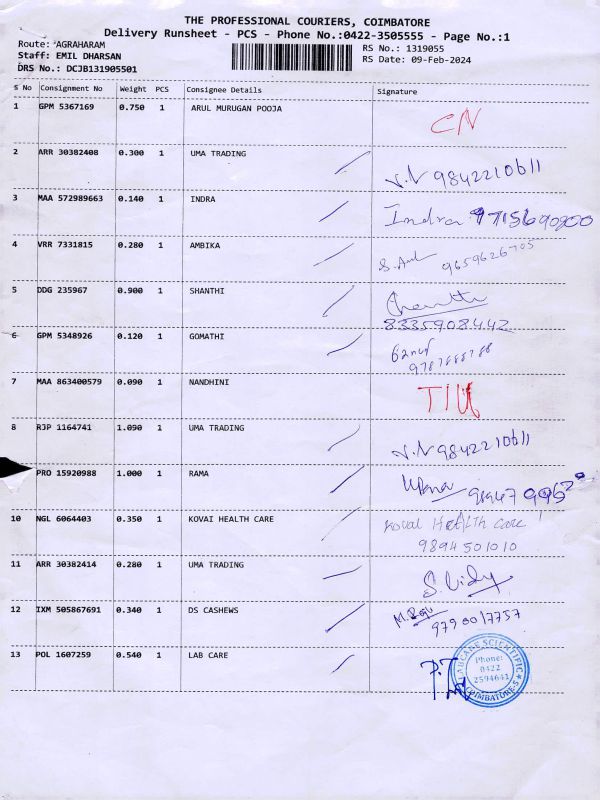 THE PROFESSIONAL COURIERS, COIMBATORE
Delivery Runsheet - PCS - Phone No.:0422-3505555 - Page No.:1
Route: AGRAHARAM RS No.: 1319055
Staff: EMIL DHARSAN RS Date: 09-Feb-2024
DRS No.: DCJB131905501
S No Consignment No Weight PCS Consignee Details Signature
1 GPM 5367169 0.750 1 ARUL MURUGAN POOJA CN
2 ARR 30382408 0.300 1 UMA TRADING V.N 9842210611
3 MAA 572989663 0.140 1 INDRA Indra 9715690800
4 VRR 7331815 0.280 1 AMBIKA 9659626705
5 DDG 235967 0.900 1 SHANTHI Shanthi
8335908442
6 GPM 5348926 0.120 1 GOMATHI
7 MAA 863400579 0.090 1 NANDHINI
8 RJP 1164741 1.090 1 UMA TRADING V.N 9842210611
PRO 15920988 1.000 1 RAMA
10 NGL 6064403 0.350 1 KOVAI HEALTH CARE Kovai Health Care
9894501010
11 ARR 30382414 0.280 1 UMA TRADING
12 IXM 505867691 0.340 1 DS CASHEWS 9790017757
13 POL 1607259 0.540 1 LAB CARE
LABCARE SCIENTIFIC
Phone:
0422
2594641
COIMBATORE-5